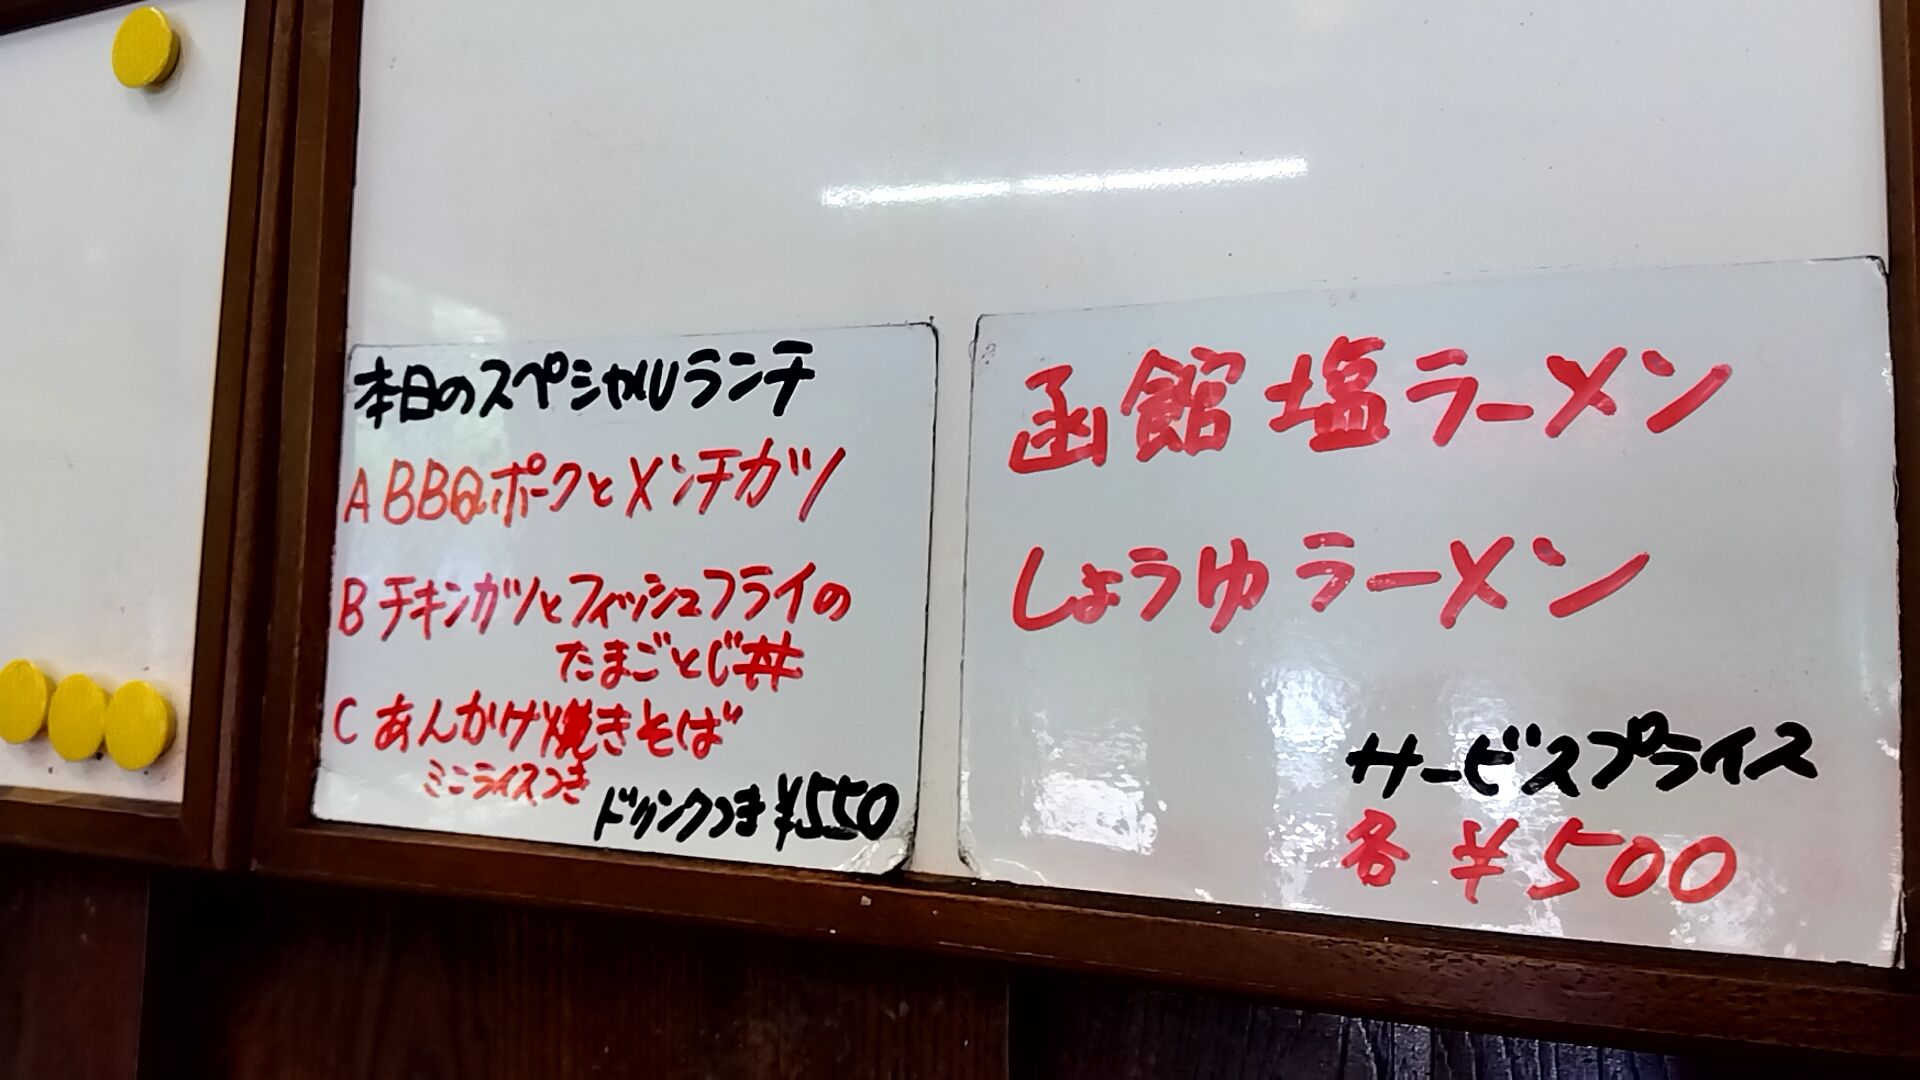 本日のスペシャルランチ
A BBQポークとメンチカツ
B チキンカツとフィッシュフライの
たまごとじ丼
C あんかけ焼きそば
ミニライスつき
ドリンクつき ¥550
函館塩ラーメン
しょうゆラーメン
サービスプライス
各 ¥500